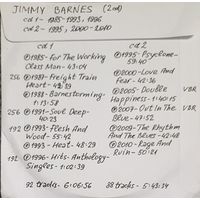 JIMMY BARNES (2cd)
cd 1 - 1985-1993, 1996
cd 2 - 1995, 2000-2010
cd 1
℗1985-For The Working
Class Man-43:04
256 ℗1987-Freight Train
Heart-48:39
℗1988-Barnestorming-
1:13:58
256 ℗1991-Soul Deep-
40:23
192 ℗1993-Flesh And
Wood-55:42
℗1993-Heat-48:29
192 ℗1996-Hits Anthology-
Singles-1:02:39
92 tracks. 6:06:56
cd 2
℗1995-Psyclone-
59:40
℗2000-Love And
Fear-42:36
℗2005-Double VBR
Happiness-1:40:15
℗2007-Out In The VBR
Blue-47:52
℗2009-The Rhythm
And The Blues-42:48
℗2010-Rage And
Ruin-50:21
88 tracks. 5:43:34